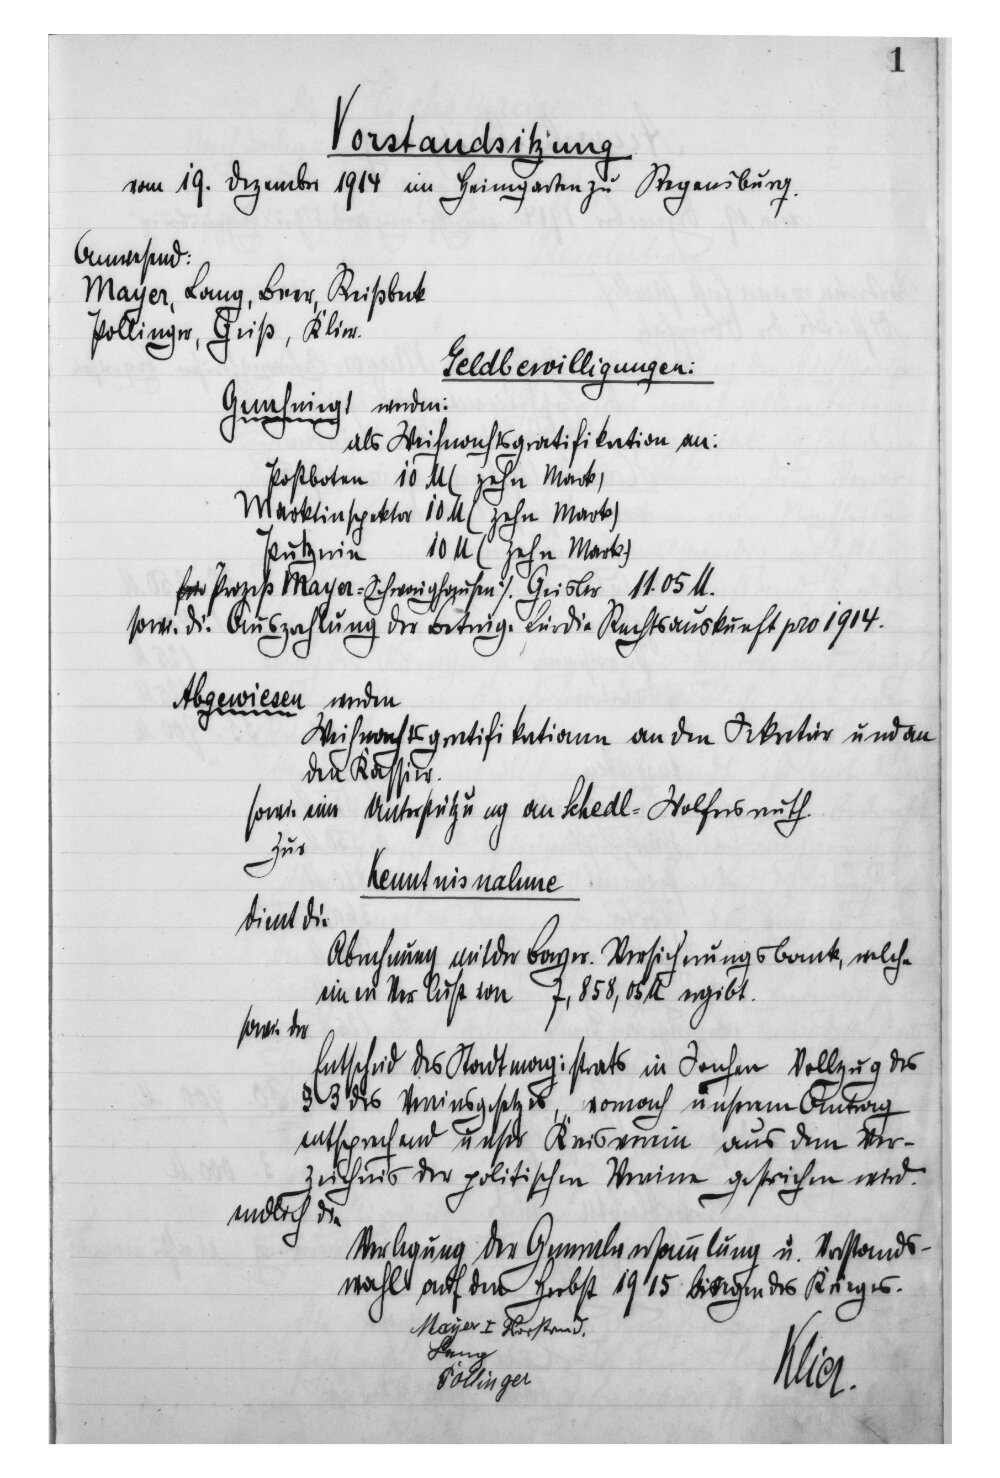 1
Vorstandsitzung
vom 19. Dezember 1914 im Heimgarten zu Regensburg.
Anwesend:
Mayer, Lang, Beer, Reißbeck
Pollinger, Geiß, Klier.
Geldbewilligungen:
Genehmigt werden:
als Weihnachtsgratifikation an:
Postboten 10 M ( zehn Mark)
Marktinspektor 10 M ( zehn Mark)
Putzerin 10 M ( zehn Mark)
Prozeß Mayer-Schwaighausen ./. Geisler 11.05 M.
sowie die Auszahlung der Beträge für die Rechtsauskunft pro 1914.
Abgewiesen werden
Weihnachtsgratifikationen an den Sekretär und an
den Kassier.
sowie eine Unterstützung an Schedl-
Zur
Kenntnisnahme
dient die
Abrechnung mit der bayer. Versicherungsbank, welche
einen Verlust von 7,858,05 M ergibt.
sowie der
Entscheid des Stadtmagistrats in Sachen Vollzug des
§ 3 des Vereinsgesetzes, wonach unserem Antrag
entsprechend unser Kreisverein aus dem Ver-
zeichnis der politischen Vereine gestrichen wird.
endlich die
Verlegung der Generalversammlung u. Vorstands-
wahl auf den Herbst 1915 wegen des Krieges.
Mayer I Vorstand.
Lang
Pollinger
Klier.